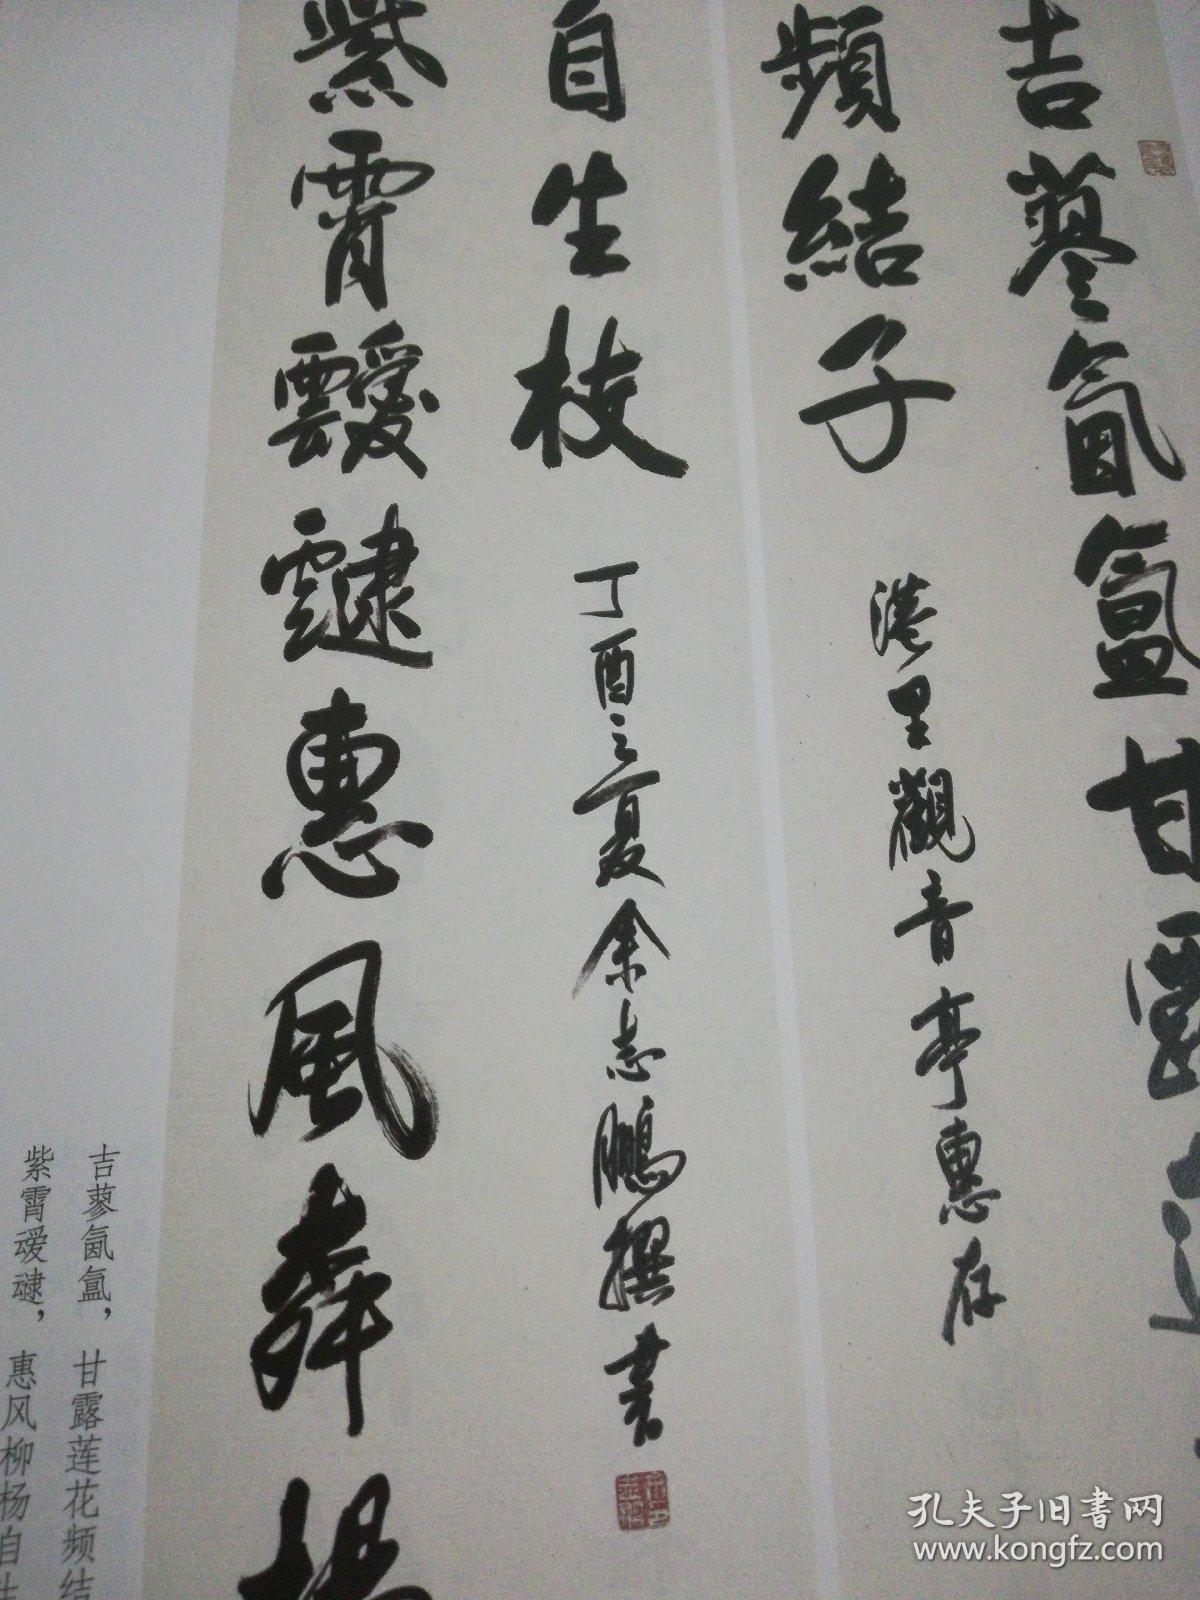 吉蓼氤氳甘露
頻結子
港里觀音亭惠存
自生枝
丁酉之夏余志鵬撰書
紫霄靉靆惠風舞楊
吉蓼氤氲，甘露莲花频结
紫霄叆叇，惠风柳杨自生
孔夫子旧书网
www.kongfz.com